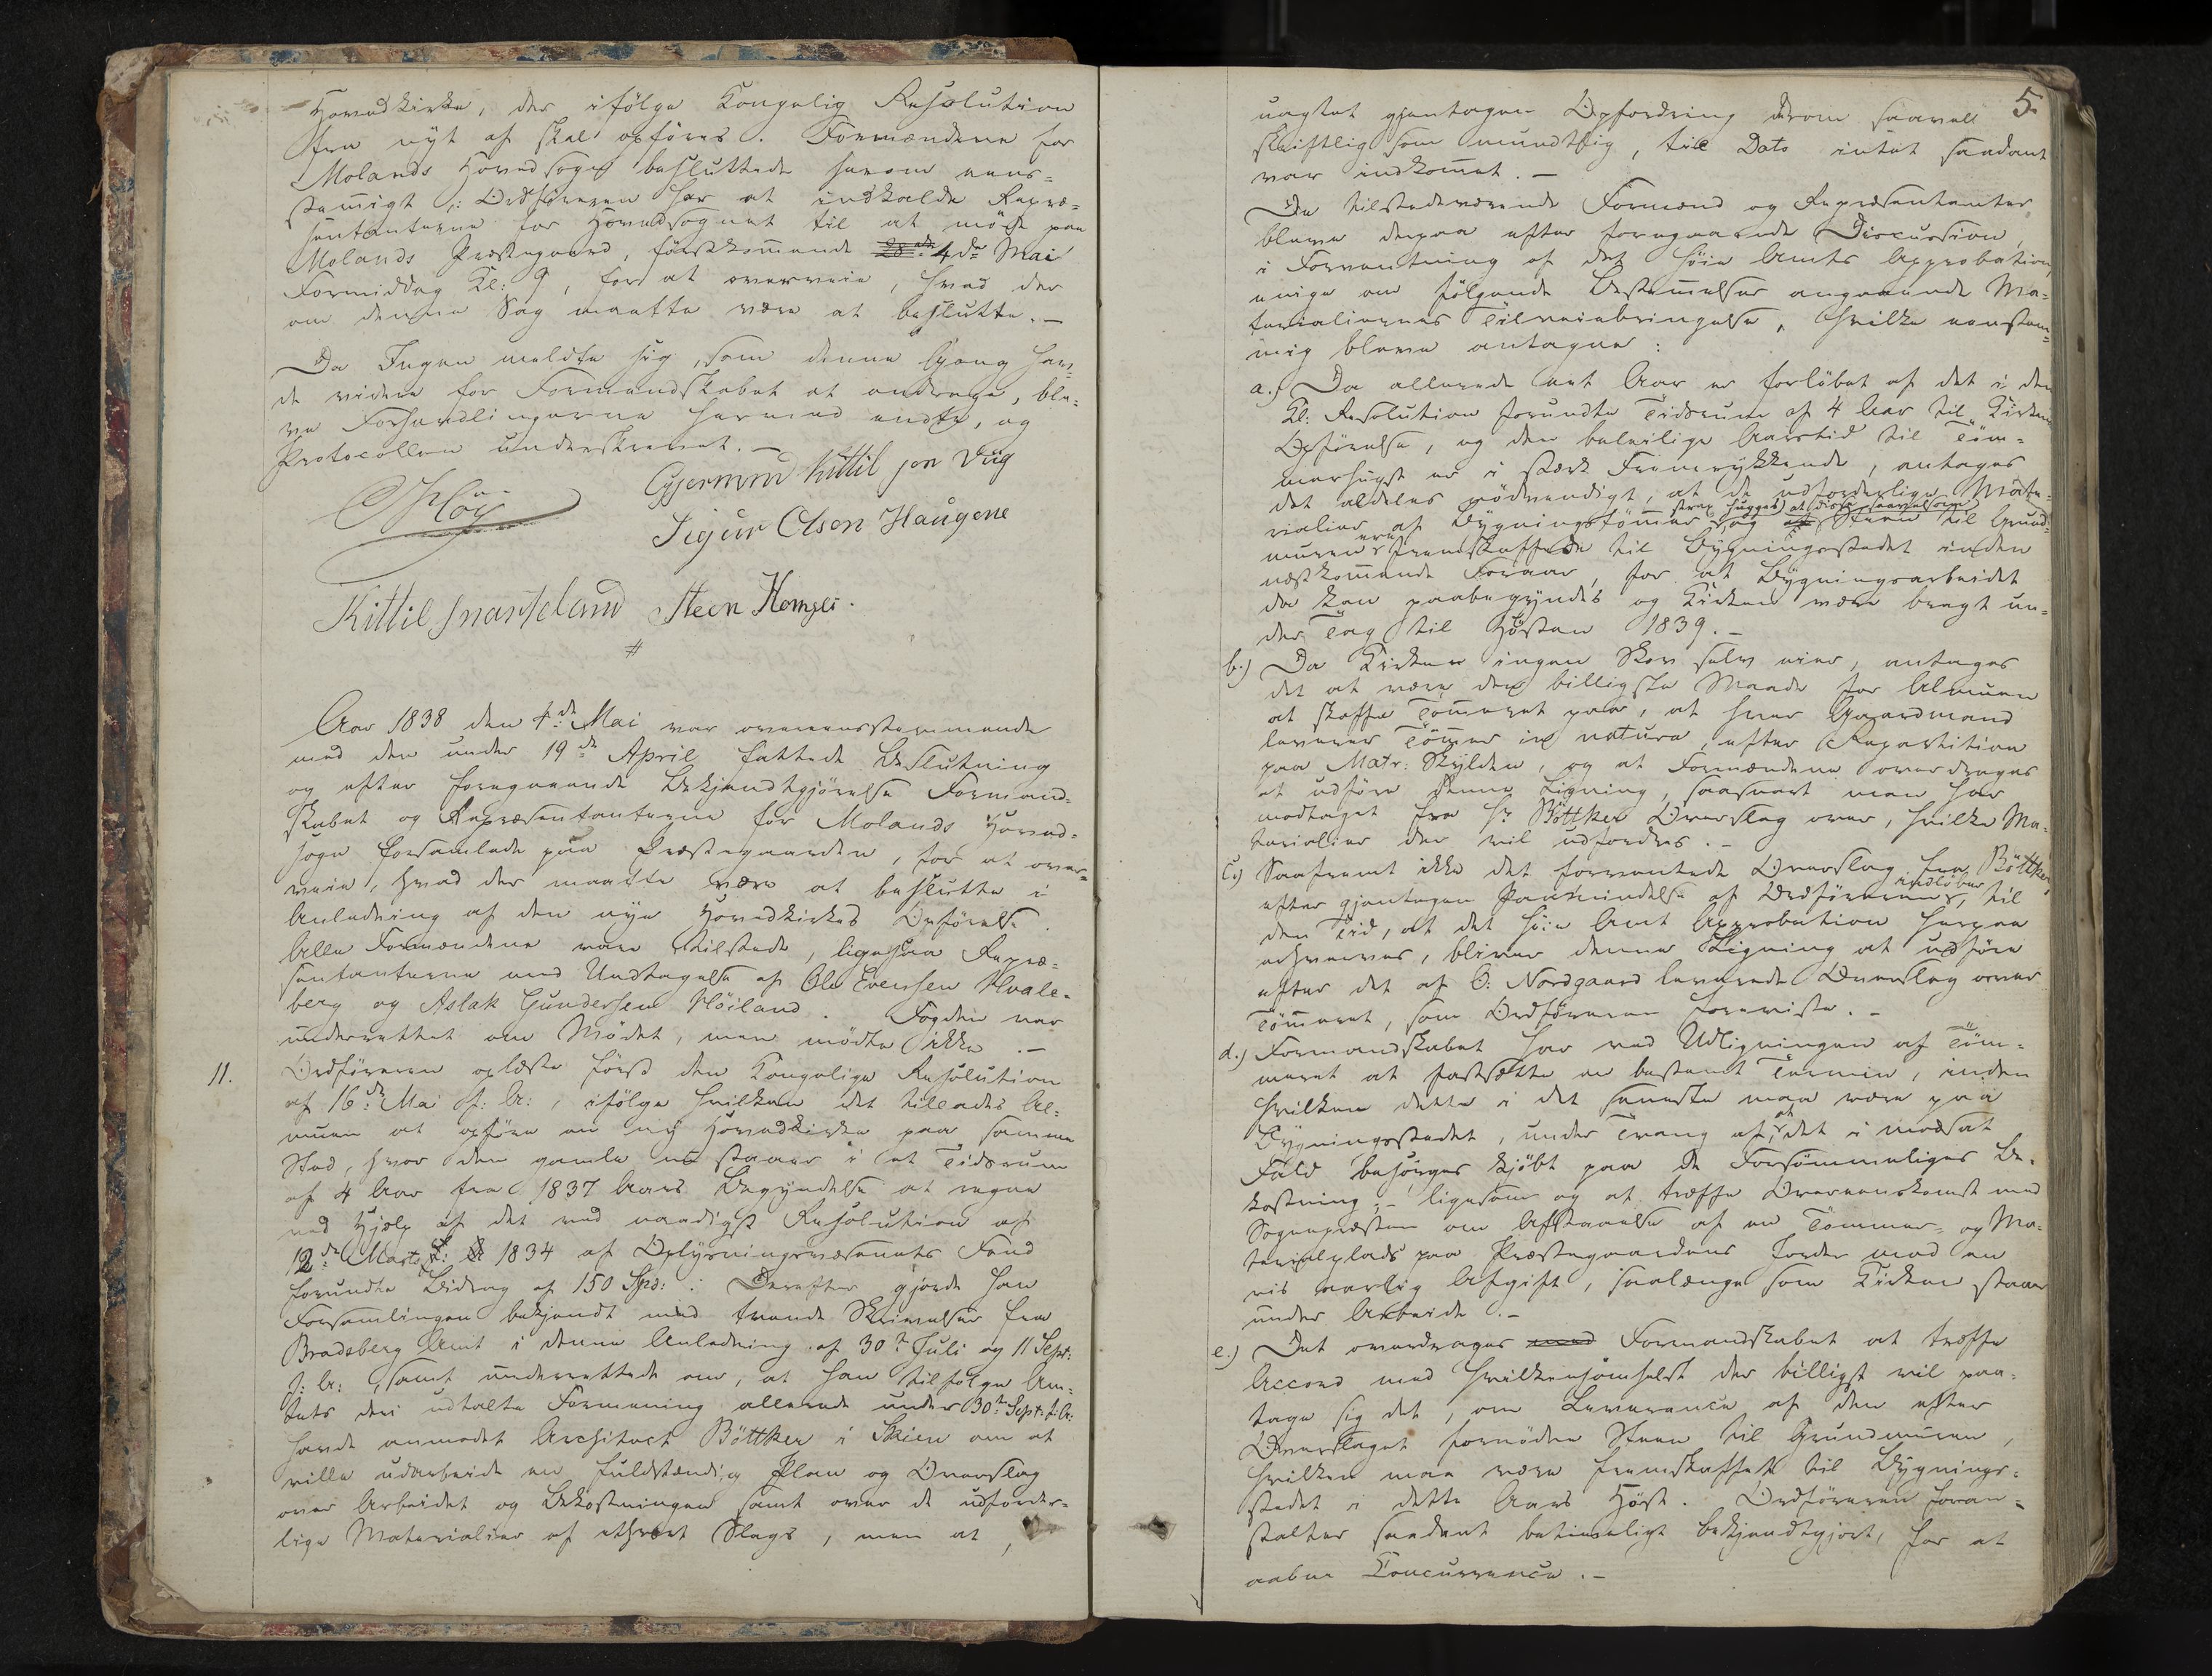 Hovedkirke, der ifölge Kongelig Resolution
fra nyt af skal opföres. Formændene for
Molands Hovedsogn besluttede herom eens-
stemmigt: Ordföreren har at indkalde Repræ-
sentanterne for Hovedsognet til at möde paa
Molands Præstegaard, förstkommende 28de 4de Mai
Formiddag Kl: 9, for at overveie, hvad der
om denne Sag maatte være at beslutte.-
Da Ingen meldte sig, som denne Gang hav-
de videre for Formandskabet at andrage, ble-
ve Forhandlingerne hermed endte, og
Protocollen underskrevet.-
Gjermund Kittil sen Viig
Sigur Olsen Haugene
Kittil Snarteland Steen Homlei.
#
Aar 1838 den 4de Mai var overeensstemmende
med den under 19de April fattede Beslutning
og efter foregaaende Bekjendtgjörelse Formand-
skabet og Repræsentanterne for Molands Hoved-
sogn forsamlede paa Præstegaarden, for at over-
veie, hvad der maatte være at beslutte i
Anledning af den nye Hovedkirkes Opförelse.
Alle Formændene vare tilstede, ligesaa Repræ-
sentanterne med Undtagelse af Ole Evensen Hvale-
berg og Aslak Gundersen Höiland. Fogden var
underrettet om Mödet, men mödte ikke.-
11. Ordföreren oplæste först den Kongelige Resolution
af 16de Mai f: A:, ifölge hvilken det tillades Al-
muen at opföre en ny Hovedkirke paa samme
Sted, hvor den gamle nu staaer i et Tidsrum
af 4 Aar fra 1837 Aars Begyndelse at regne
ved Hjelp af det ved naadigst Resolution af
12de Marts 1834 af Oplysningsvæsenets Fond
forundte Bidrag af 150 Spd: . Derefter gjorde han
Forsamlingen bekjendt med tvende Skrivelser fra
Bradsberg Amt i denne Anledning af 30te Juli og 11 Sept:
f: A:, samt underrettede om, at han tilfölge Am-
tets deri udtalte Formening allerede under 30te Sept: f: A:
havde anmodet Architect Böttker i Skien om at
ville udarbeide en fuldstændig Plan og Overslag
over Arbeidet og Bekostningen samt over de udforder-
lige Materialier af ethvert Slags, men at,
5.
uagtet gjentagen Opfordring derom saavel
skriftlig som mundtlig, til Dato intet saadant
var indkommet.-
De tilstedeværende Formænd og Repræsentanter
bleve derpaa efter foregaaende Discussion,
i Forventning af det höie Amts Approbation,
enige om fölgende Bestemmelser angaaende Ma-
terialiernes Tilveiebringelse, hvilke eenstem-
mig bleve antagne:
a.) Da allerede eet Aar er forlöbet af det i den
Kl: Resolution forundte Tidsrum af 4 Aar til Kirkens
Opförelse, og den beleilige Aarstid til Töm-
merhugst er i stærk Fremrykkende, antages
det aldeles nödvendigt, at de udforderlige Mate-
strax hugges, at disse saavelsom
rialier af Bygningstömmer og af Steen til Grund-
muren ere fremskaffede til Bygningsstedet inden
næstkommende Foraar, for at Bygningsarbeidet
da kan paabegyndes og Kirken være bragt un-
der Tag til Hösten 1839.-
b.) Da Kirken ingen Skov selv eier, antages
det at være den billigste Maade for Almuen
at skaffe Tömmeret paa, at hver Gaardmand
leverer Tömmer in natura, efter Repartition
paa Matr: Skylden, og at Formændene overdrages
at udföre denne Ligning, saasnart man har
modtaget fra Hr Böttker Overslag over, hvilke Ma-
terialier der vil udfordres.-
c.) Saafremt ikke det forventede Overslag fra Böttker,
efter gjentagen Paamindelse af Ordföreren, indlöber til
den Tid, at det höie Amt Approbation herpaa
erhverves, bliver denne Ligning at udföre
efter det af O: Nordgaard leverede Overslag over
Tömmeret, som Ordföreren foreviste.-
d.) Formandskabet har ved Udligningen af Töm-
meret at fastsætte en bestemt Termin, inden
hvilken dette i det seneste maa være paa
Bygningsstedet, under Tvang af, at det i modsat
Fald besörges kjöbt paa de Forsömmeliges Be-
kostning;- ligesom og at træffe Overeenskomst med
Sognepræsten om Afstaaelse af en Tömmer- og Ma-
terialplads paa Præstegaardens Jorder mod en
vis aarlig Afgift, saalænge som Kirken staaer
under Arbeide.-
e.) Det overdrages med Formandskabet at træffe
Accord med hvilkensomhelst der billigst vil paa-
tage sig det, om Leverance af den efter
Overslaget fornödne Steen til Grundmuren,
hvilken maa være fremskaffet til Bygnings-
stedet i dette Aars Höst. Ordföreren foran-
stalter saadant betimeligt bekjendtgjort, for at
aabne Concurrence.-